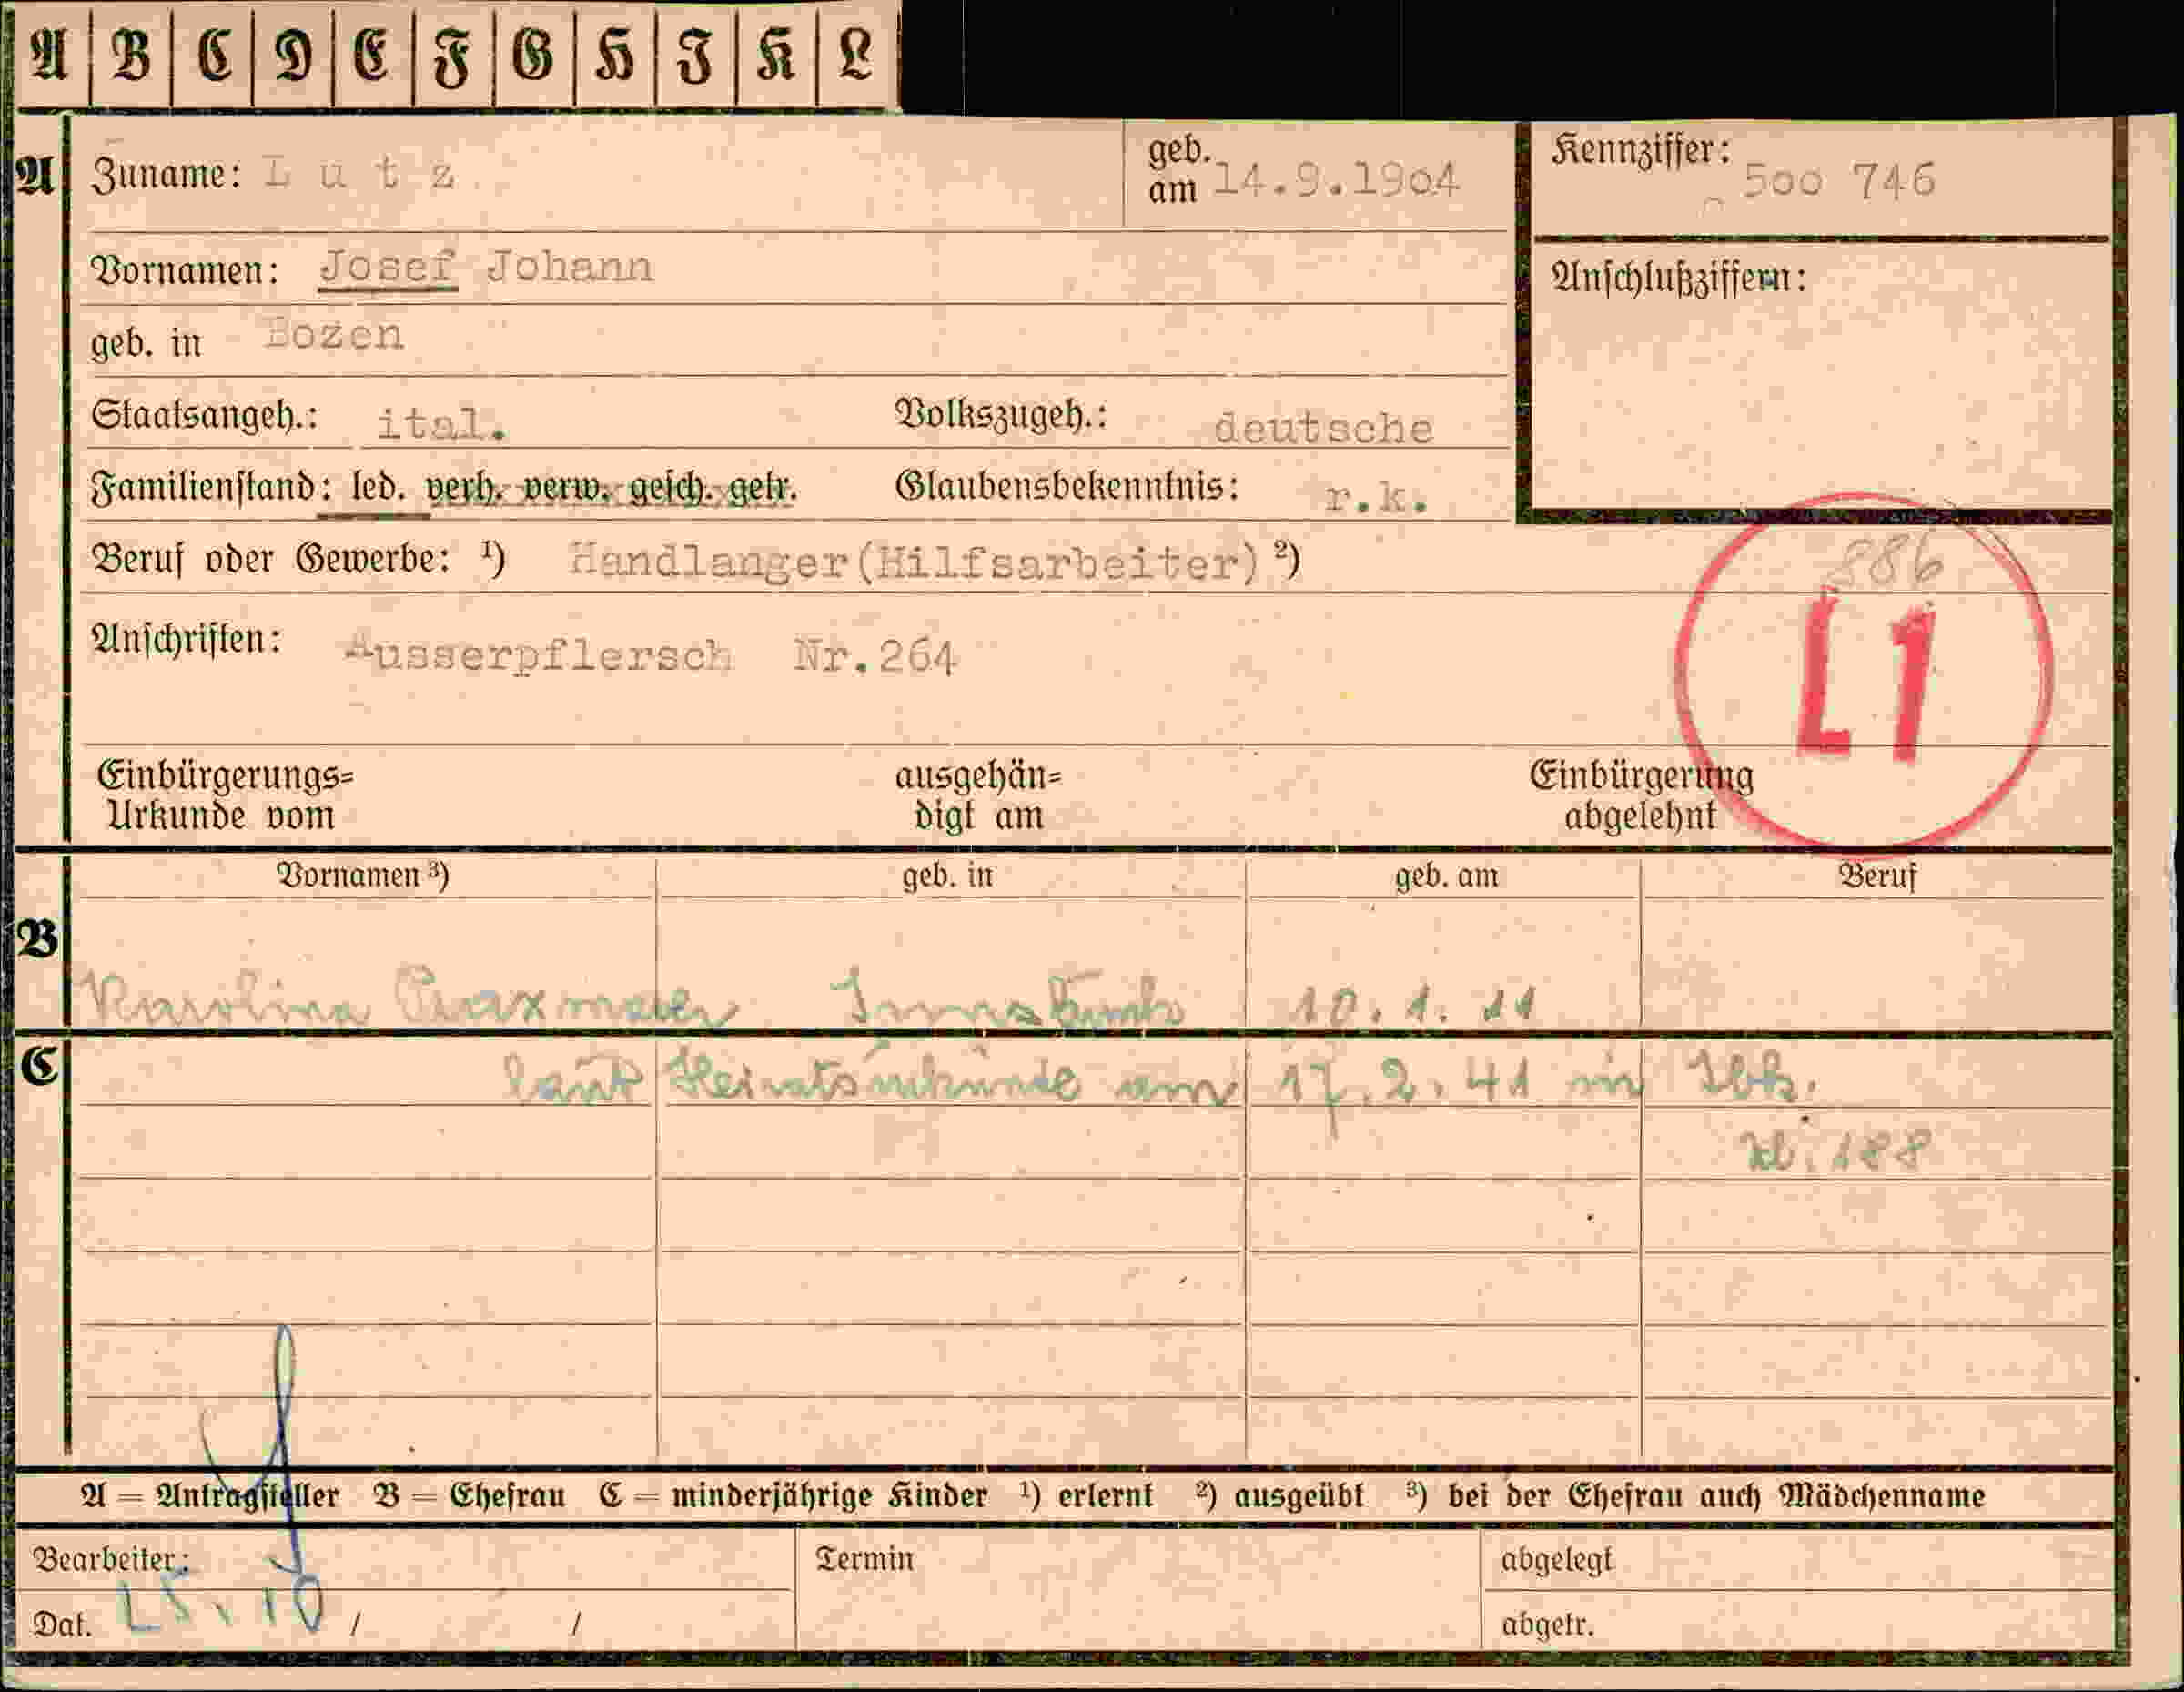 A B C D E F G H I K L
A Zuname: Lutz geb. am 14.9.1904 Kennziffer: 500 746
Vornamen: Josef Johann Anschlußziffern:
geb. in Bozen
Staatsangeh.: ital. Volkszugeh.: deutsche
Familienstand: led. verh. verw. gesch. getr. Glaubensbekenntnis: r.k.
Beruf oder Gewerbe: ¹) Handlanger(Hilfsarbeiter) ²) 886
Anschriften: Ausserpflersch Nr.264 L1
Einbürgerungs= ausgehän= Einbürgerung
Urkunde vom digt am abgelehnt
Vornamen ³) geb. in geb. am Beruf
B
Karolina Praxmarer Innsbruck 10. 1. 11
C laut Heiratsurkunde am 17. 2. 41 in Ibk.
188
A = Antragsteller B = Ehefrau C = minderjährige Kinder ¹) erlernt ²) ausgeübt ³) bei der Ehefrau auch Mädchenname
Bearbeiter: Termin abgelegt
Dat. / / abgetr.